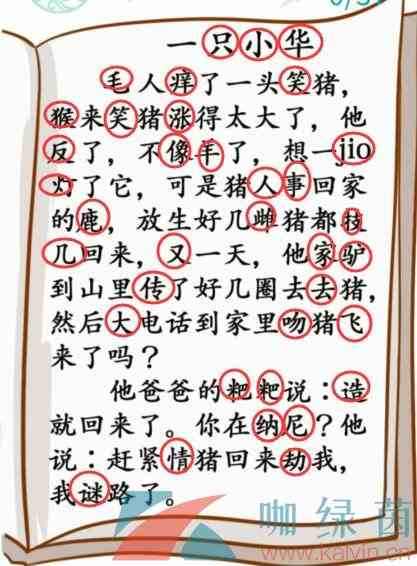 一只小华
毛人痒了一头笑猪，
猴来笑猪涨得太大了，他
反了，不像羊了，想一jio
灯了它，可是猪人事回家
的鹿，放生好几雌猪都技
几回来，又一天，他家驴
到山里传了好几圈去去猪，
然后大电话到家里吻猪飞
来了吗？
他爸爸的粑粑说：造
就回来了。你在纳尼？他
说：赶紧情猪回来劫我，
我谜路了。
咖绿茵
www.kalvin.cn